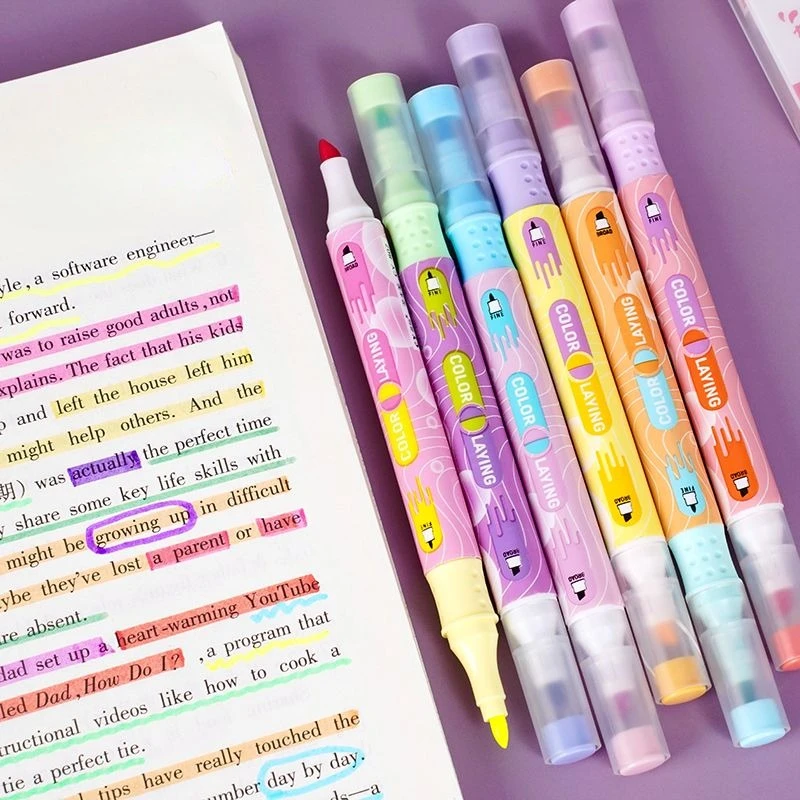 yle, a software engineer—
forward.
was to raise good adults, not
explains. The fact that his kids
p and left the house left him
might help others. And the
期) was actually the perfect time
y share some key life skills with
might be growing up in difficult
ybe they've lost a parent or have
re absent.
dad set up a heart-warming YouTube
led Dad, How Do I? , a program that
tructional videos like how to cook a
tie a perfect tie.
tips have really touched the
number day by day.
ds—a
BROAD
COLOR LAYING
FINE
FINE
COLOR LAYING
BROAD
FINE
COLOR LAYING
BROAD
FINE
COLOR LAYING
BROAD
BROAD
COLOR LAYING
FINE
FINE
COLOR LAYING
BROAD